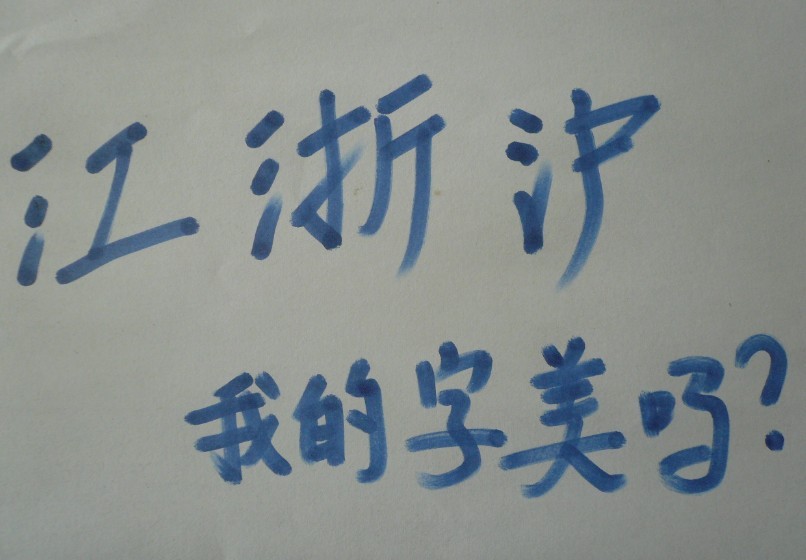 江浙沪
我的字美吗?